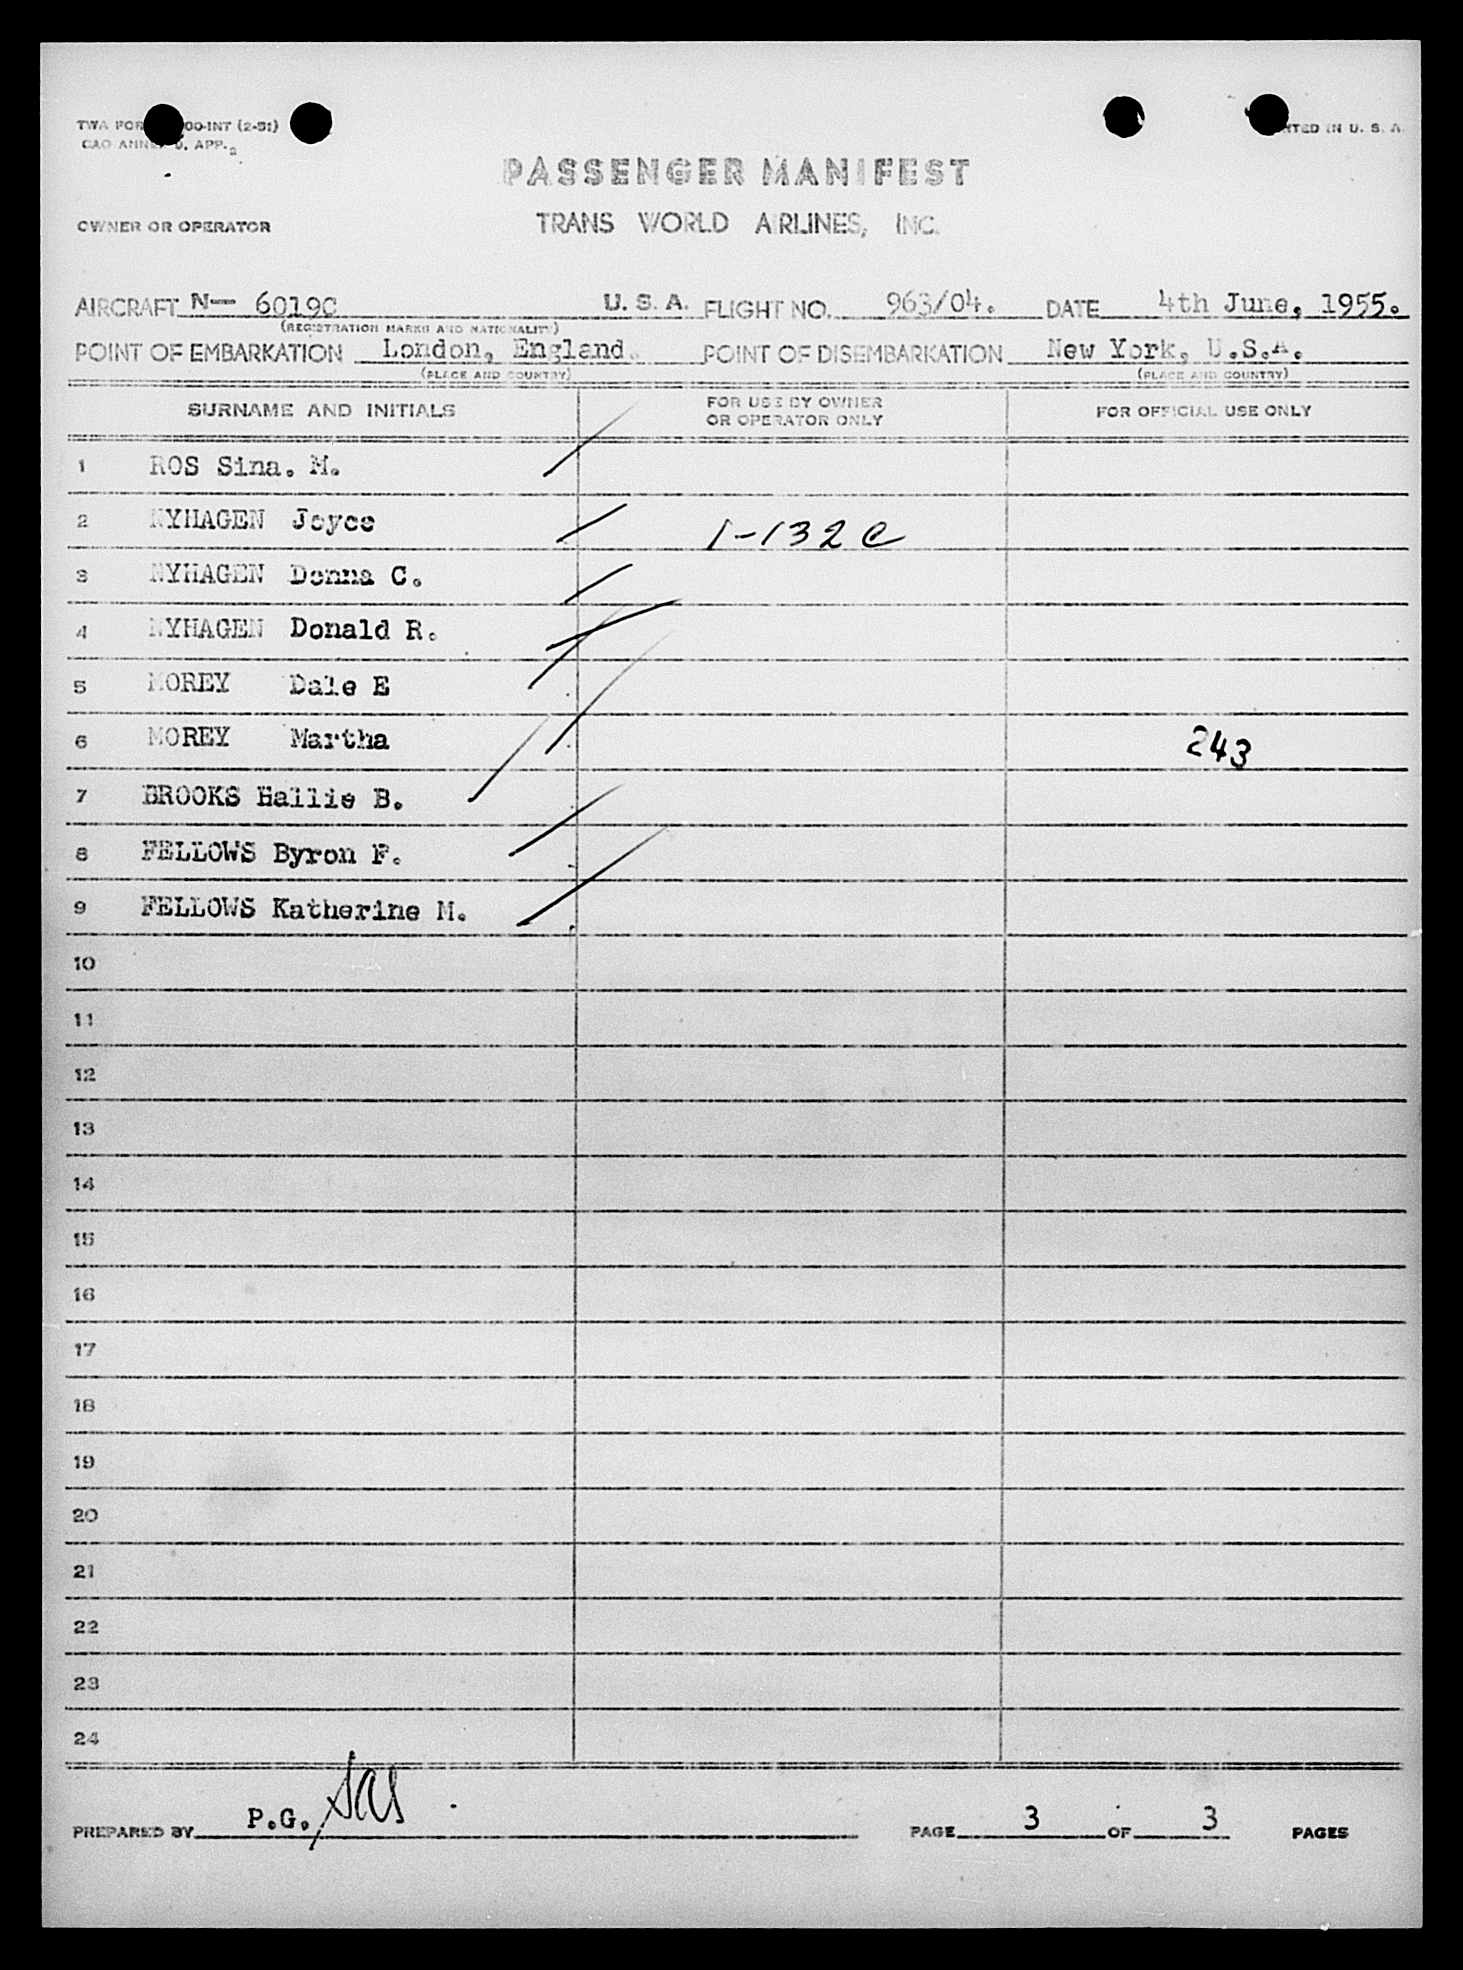 TWA FOR 00-INT (2-51)
APP. 2
PRINTED IN U. S. A.
PASSENGER MANIFEST
OWNER OR OPERATOR
TRANS WORLD AIRLINES, INC.
AIRCRAFT N— 6019C U. S. A. FLIGHT NO. 963/04. DATE 4th June, 1955.
(REGISTRATION MARKS AND NATIONALITY)
POINT OF EMBARKATION London, England. POINT OF DISEMBARKATION New York, U.S.A.
(PLACE AND COUNTRY) (PLACE AND COUNTRY)
SURNAME AND INITIALS FOR USE BY OWNER OR OPERATOR ONLY FOR OFFICIAL USE ONLY
1 ROS Sina. M.
2 NYHAGEN Joyce 1-132 C
3 NYHAGEN Donna C.
4 NYHAGEN Donald R.
5 MOREY Dale E
6 MOREY Martha 243
7 BROOKS Hallie B.
8 FELLOWS Byron F.
9 FELLOWS Katherine M.
10
11
12
13
14
15
16
17
18
19
20
21
22
23
24
PREPARED BY P.G./ PAGE 3 OF 3 PAGES